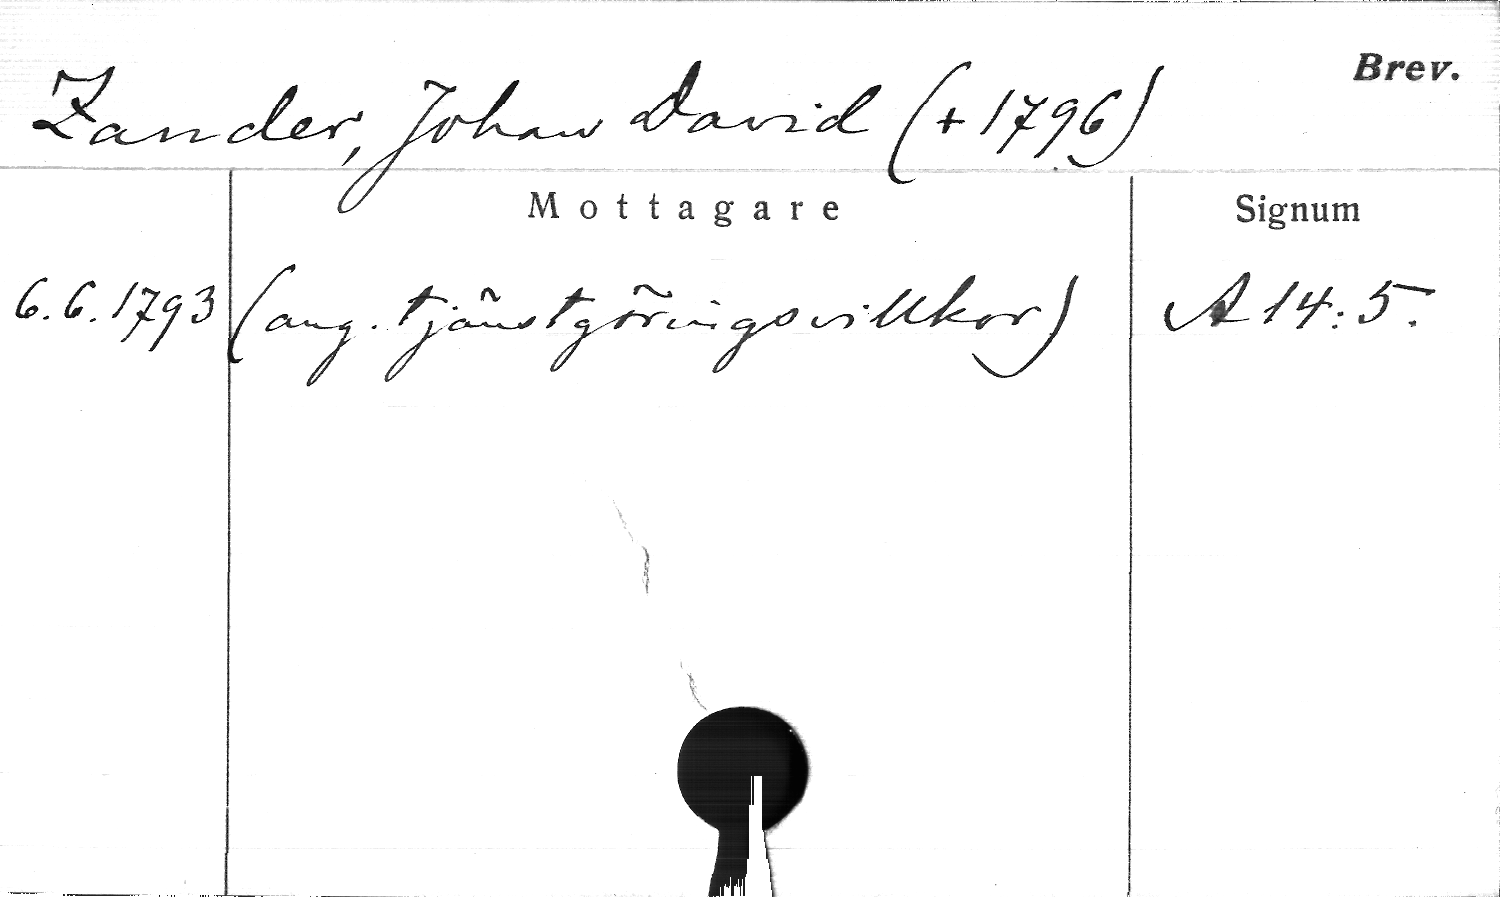 Brev.
Zander, Johan David (+ 1796)
Mottagare
Signum
6.6.1793 (ang. tjänstgöringsvillkor) A 14:5.